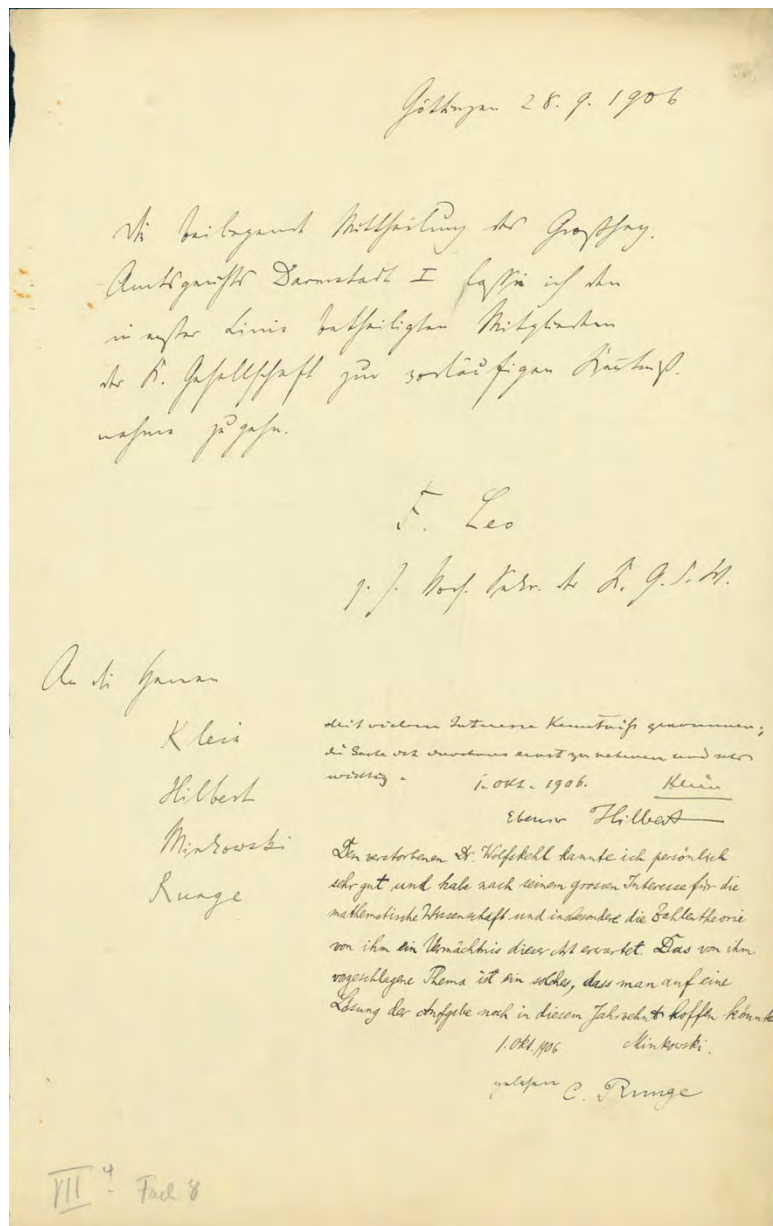 Göttingen 28. 9. 1906
Die beiliegende Mittheilung des Großherz.
Amtsgerichts Darmstadt I lasse ich den
in erster Linie betheiligten Mitgliedern
der K. Gesellschaft zur vorläufigen Kenntniß-
nahme zugehn.
F. Leo
z. Z. Vors. Sekr. der K. G. d. W.
An die Herren
Klein
Hilbert
Minkowski
Runge
Mit vielem Interesse Kenntniß genommen;
die Sache ist durchaus ernst zu nehmen und sehr
wichtig.
1. Okt. 1906. Klein
Ebenso Hilbert
Den verstorbenen Dr. Wolfskehl kannte ich persönlich
sehr gut und habe nach seinem grossen Interesse für die
mathematische Wissenschaft und insbesondere die Zahlentheorie
von ihm ein Vermächtnis dieser Art erwartet. Das von ihm
vorgeschlagene Thema ist ein solches, dass man auf eine
Lösung der Aufgabe noch in diesem Jahrzehnt hoffen könnte
1. Okt. 1906 Minkowski.
gelesen C. Runge
VII 4 - Fach 8